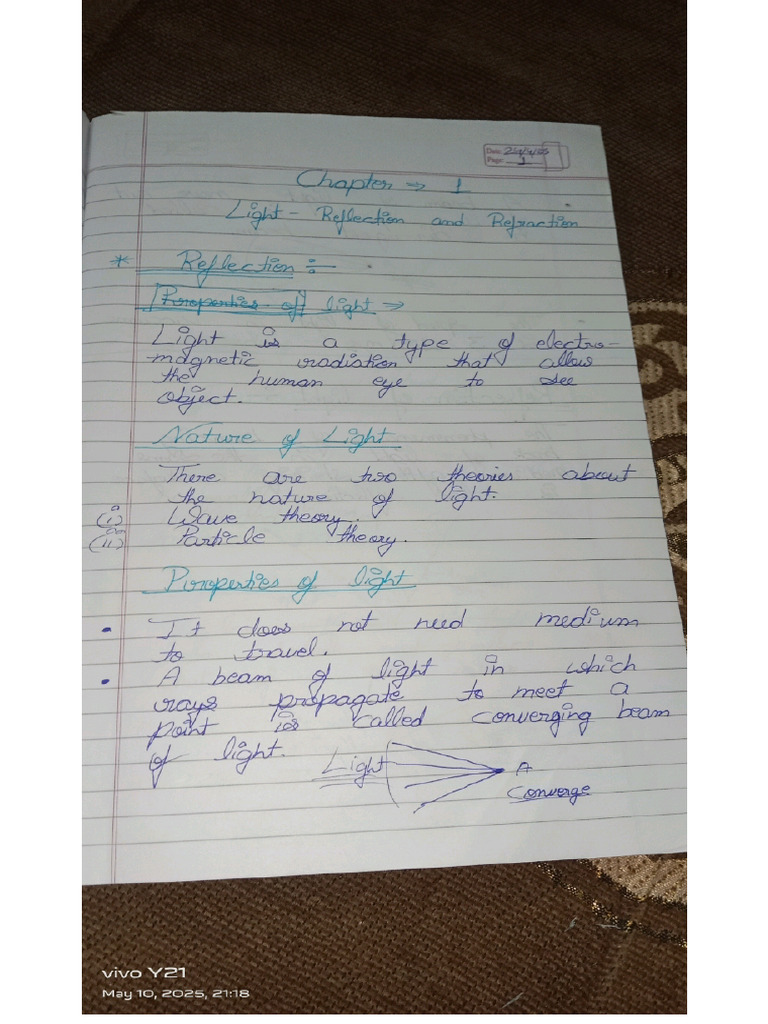 Date:
Page: 1
Chapter → 1
Light - Reflection and Refraction
* Reflection :-
Properties of light →
Light is a type of electro-
magnetic radiation that allow
the human eye to see
object.
Nature of Light
There are two theories about
the nature of light.
(i) Wave theory.
(ii) Particle theory.
Properties of light
• It does not need medium
to travel.
• A beam of light in which
rays propagate to meet a
point is called converging beam
of light.
Light A
Converge
vivo Y21
May 10, 2025, 21:18